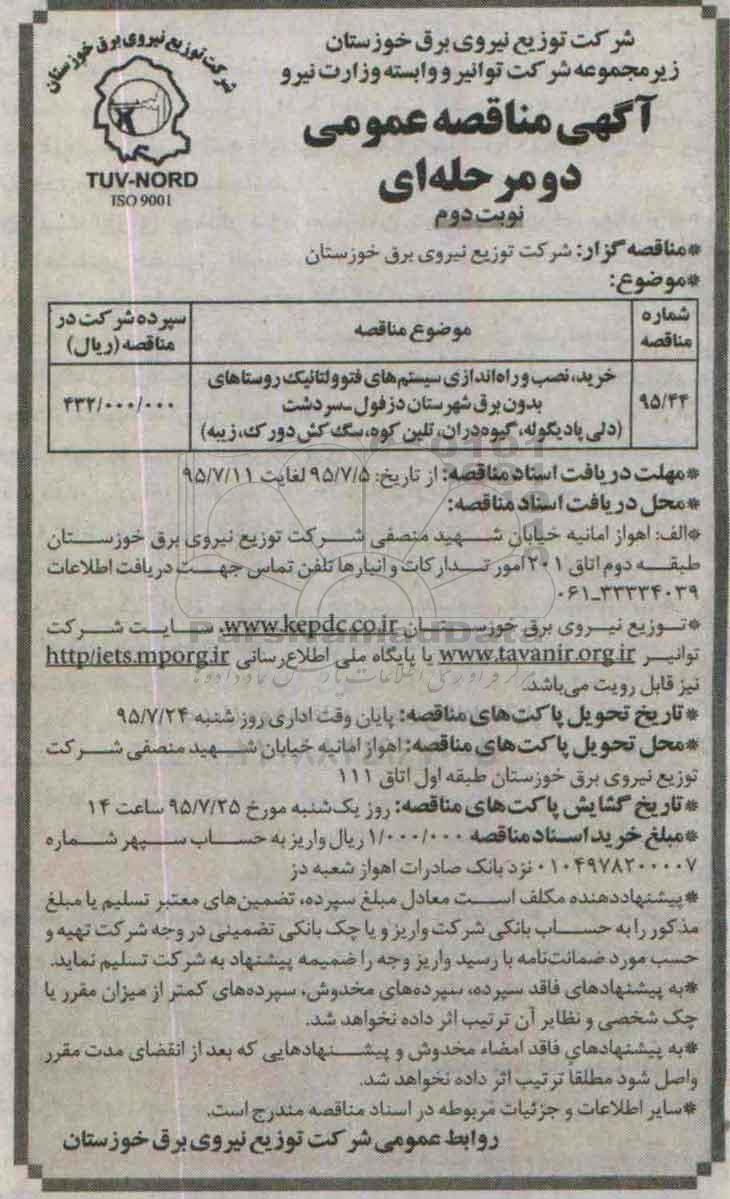 شرکت توزیع نیروی برق خوزستان
TUV-NORD
ISO 9001
شرکت توزیع نیروی برق خوزستان
زیرمجموعه شرکت توانیر و وابسته وزارت نیرو
آگهی مناقصه عمومی
دو مرحله‌ای
نوبت دوم
*مناقصه گزار: شرکت توزیع نیروی برق خوزستان
*موضوع:
شماره مناقصه
موضوع مناقصه
سپرده شرکت در مناقصه (ریال)
۹۵/۴۴
خرید، نصب و راه‌اندازی سیستم‌های فتوولتائیک روستاهای
بدون برق شهرستان دزفول ـ سردشت
(دلی پادیگوله، گیوه‌دران، تلین کوه، سگ کش دورک، زیبه)
۴۳۲/۰۰۰/۰۰۰
*مهلت دریافت اسناد مناقصه: از تاریخ: ۹۵/۷/۵ لغایت ۹۵/۷/۱۱
*محل دریافت اسناد مناقصه:
*الف: اهواز امانیه خیابان شهید منصفی شرکت توزیع نیروی برق خوزستان
طبقه دوم اتاق ۲۰۱ امور تدارکات و انبارها تلفن تماس جهت دریافت اطلاعات
۰۶۱-۳۳۳۳۴۰۳۹
*توزیع نیروی برق خوزستان www.kepdc.co.ir، سایت شرکت
توانیر www.tavanir.org.ir یا پایگاه ملی اطلاع‌رسانی http/iets.mporg.ir
نیز قابل رویت می‌باشد.
* تاریخ تحویل پاکت‌های مناقصه: پایان وقت اداری روز شنبه ۹۵/۷/۲۴
*محل تحویل پاکت‌های مناقصه: اهواز امانیه خیابان شهید منصفی شرکت
توزیع نیروی برق خوزستان طبقه اول اتاق ۱۱۱
* تاریخ گشایش پاکت‌های مناقصه: روز یک‌شنبه مورخ ۹۵/۷/۲۵ ساعت ۱۴
*مبلغ خرید اسناد مناقصه ۱/۰۰۰/۰۰۰ ریال واریز به حساب سپهر شماره
۰۱۰۴۹۷۸۲۰۰۰۰۷ نزد بانک صادرات اهواز شعبه دز
*پیشنهاددهنده مکلف است معادل مبلغ سپرده، تضمین‌های معتبر تسلیم یا مبلغ
مذکور را به حساب بانکی شرکت واریز و یا چک بانکی تضمینی در وجه شرکت تهیه و
حسب مورد ضمانت‌نامه با رسید واریز وجه را ضمیمه پیشنهاد به شرکت تسلیم نماید.
*به پیشنهادهای فاقد سپرده، سپرده‌های مخدوش، سپرده‌های کمتر از میزان مقرر یا
چک شخصی و نظایر آن ترتیب اثر داده نخواهد شد.
*به پیشنهادهای فاقد امضاء مخدوش و پیشنهادهایی که بعد از انقضای مدت مقرر
واصل شود مطلقا ترتیب اثر داده نخواهد شد.
*سایر اطلاعات و جزئیات مربوطه در اسناد مناقصه مندرج است.
روابط عمومی شرکت توزیع نیروی برق خوزستان